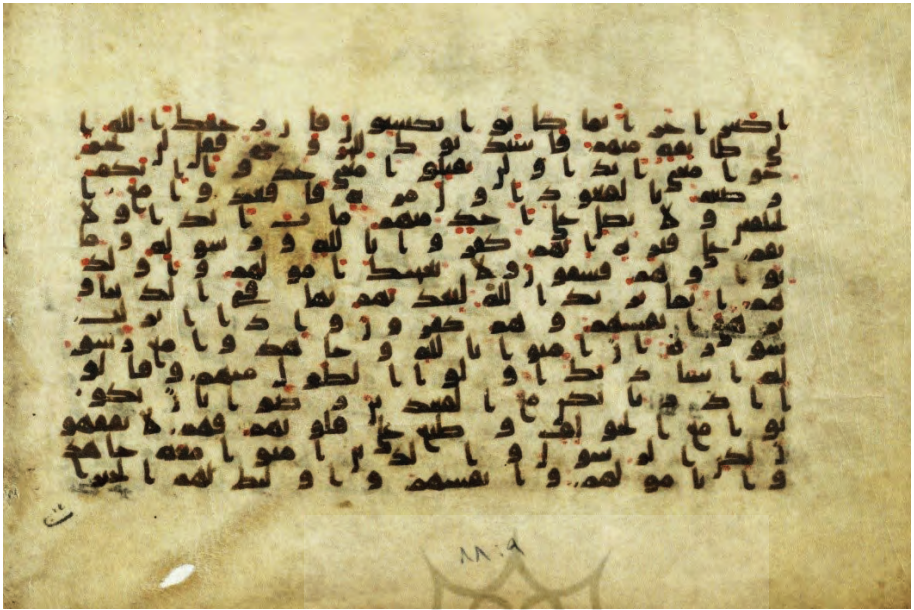 ا كثيرا جزا بما كانوا يكسبون فان رجعك الله ا
لى طائفة منهم فاستئذنوك للخروج فقل لن تخر
جوا معي ابدا ولن تقتلوا معي عدوا انكم
رضيتم بالقعود اول مرة فاقعدوا مع ا
لخلفين ولا تصل على احد منهم مات ابدا ولا
تقم على قبره انهم كفروا بالله ورسوله وما
توا وهم فسقون ولا تعجبك امولهم واولد
هم انما يريد الله يعذبهم بها في الدنيا و
تزهق انفسهم وهم كفرون واذا انزلت
سورة ان امنوا بالله وجاهدوا مع رسو
له استاذنك اولوا الطول منهم وقالو
ا ذرنا نكن مع القعدين رضوا بان يكو
نوا مع الخولف وطبع على قلوبهم فهم لا يفقهو
ن لكن الرسول والذين امنوا معه جاهدو
ا باموالهم وانفسهم واولئك لهم الخير
٨٨:٩